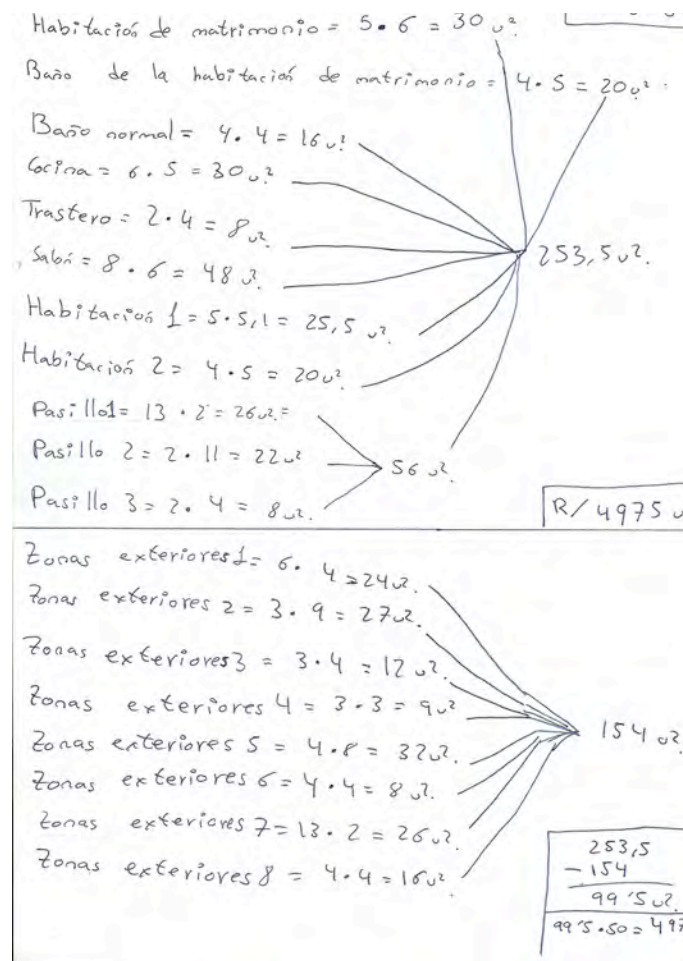 Habitación de matrimonio = 5 • 6 = 30 u².
Baño de la habitación de matrimonio = 4 • 5 = 20 u².
Baño normal = 4 • 4 = 16 u².
Cocina = 6 • 5 = 30 u².
Trastero = 2 • 4 = 8 u².
253,5 u².
Salón = 8 • 6 = 48 u².
Habitación 1 = 5 • 5,1 = 25,5 u².
Habitación 2 = 4 • 5 = 20 u².
Pasillo1 = 13 • 2 = 26 u². =
Pasillo 2 = 2 • 11 = 22 u².
56 u².
Pasillo 3 = 2 • 4 = 8 u².
R/ 4975 u
Zonas exteriores1 = 6 • 4 = 24 u².
Zonas exteriores 2 = 3 • 9 = 27 u².
Zonas exteriores3 = 3 • 4 = 12 u².
Zonas exteriores 4 = 3 • 3 = 9 u²
154 u².
Zonas exteriores 5 = 4 • 8 = 32 u².
Zonas exteriores 6 = 4 • 4 = 8 u².
Zonas exteriores 7 = 13 • 2 = 26 u².
Zonas exteriores 8 = 4 • 4 = 16 u²
253,5
- 154
99'5 u².
99'5 • 50 = 497